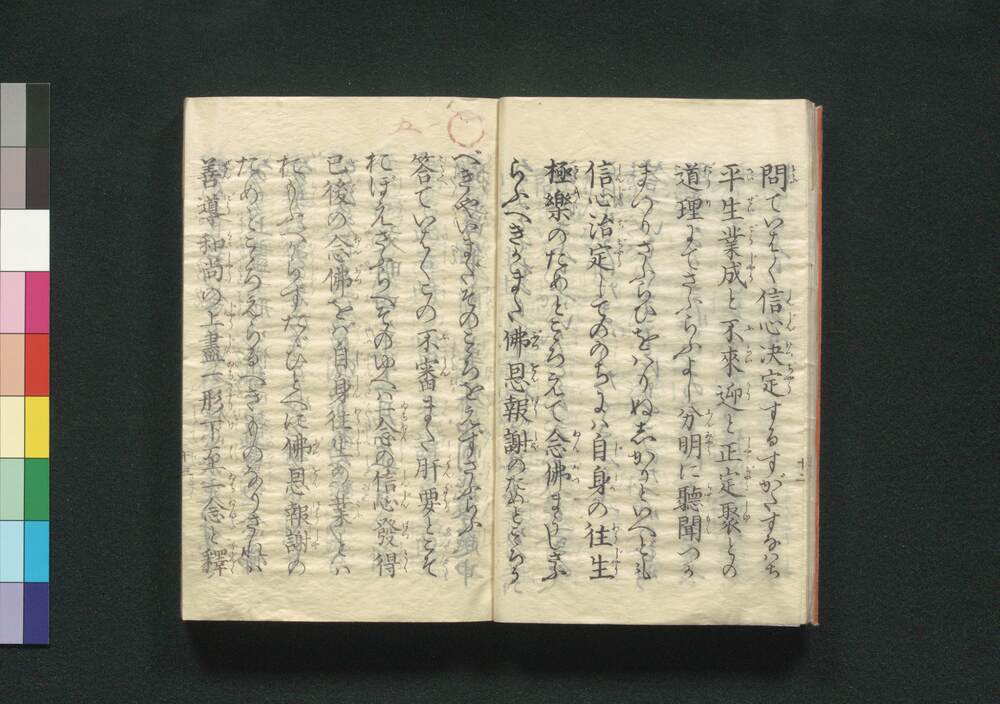 問ていはく信心決定するすがたすなはち
平生業成と不來迎と正定聚との
道理にてさふらふよし分明に聽聞つか
まつりさふらひをはりぬしかりといへども
信心治定してののちには自身の往生
極樂のためとこゝろえて念佛まうしさふ
らふべきかまた佛恩報謝のためとこゝろう
べきやいまだそのこゝろをえずさふらふ
答ていはくこの不審また肝要とこそ
おぼえさふらへそのゆへは一念の信心發得
已後の念佛をば自身往生の業とは
おもふべからずたゞひとへに佛恩報謝の
ためとこゝろえらるべきものなりされば
善導和尚の上盡一形下至一念と釋